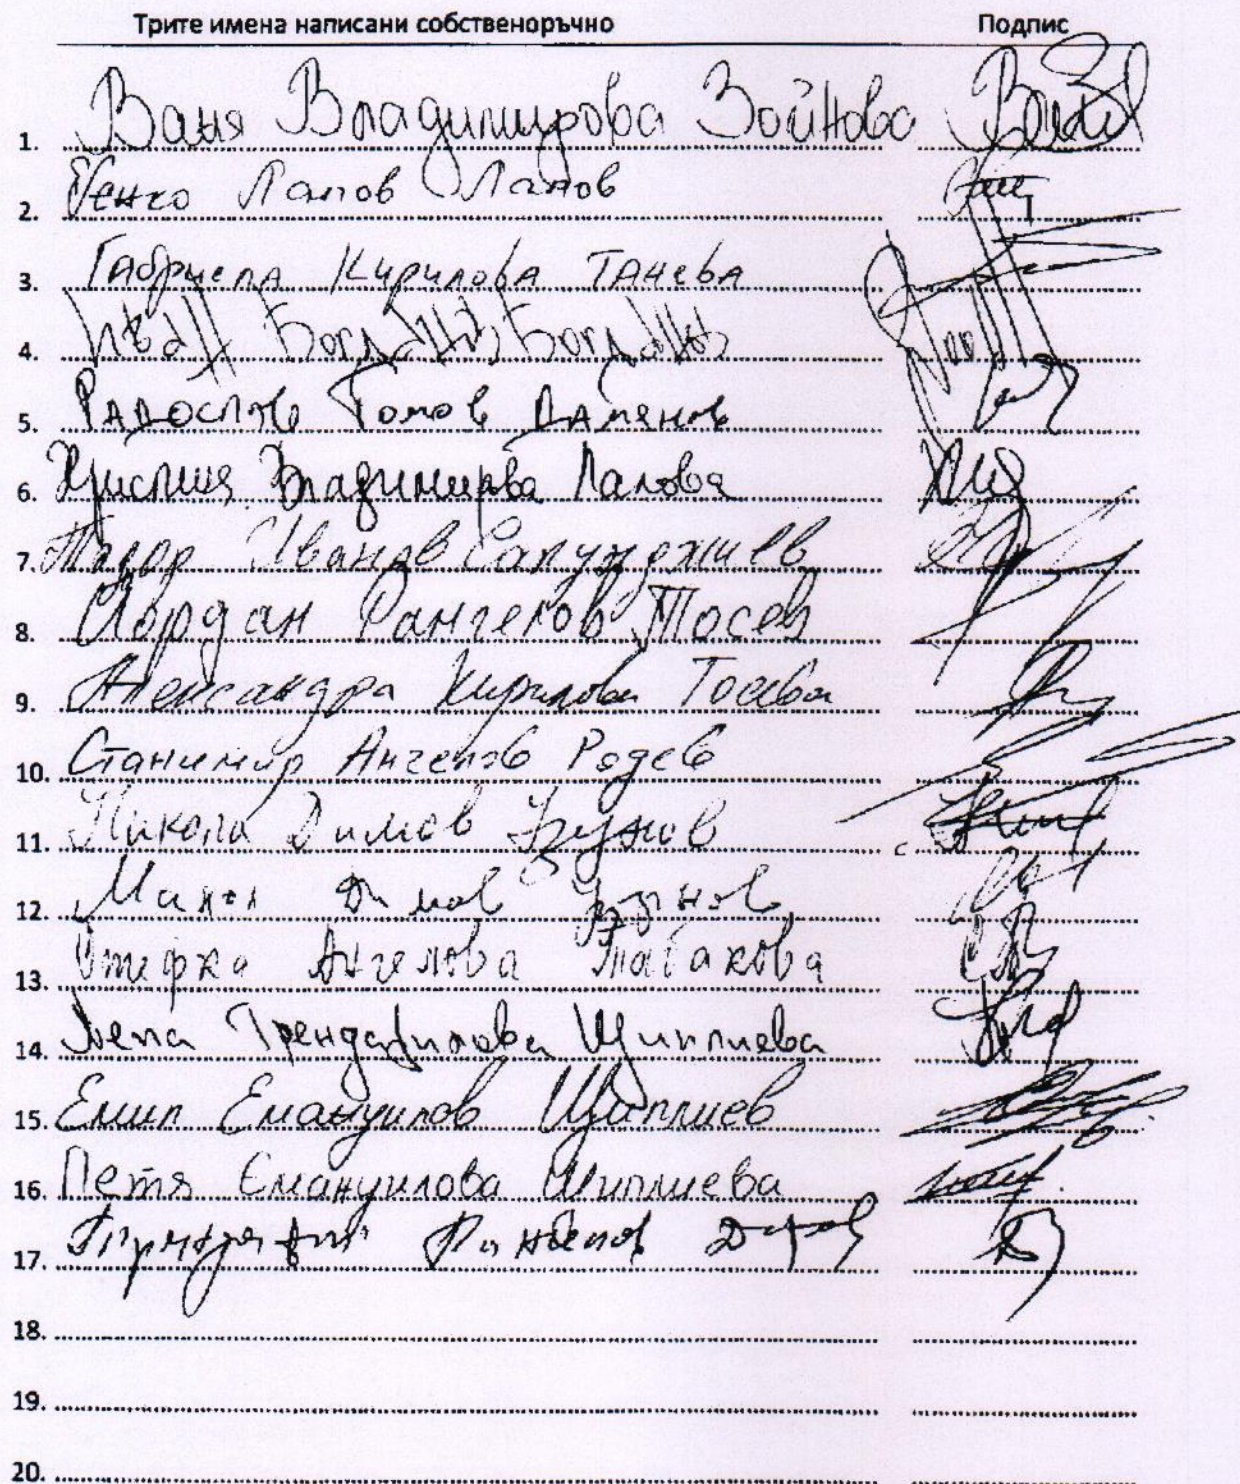 Трите имена написани собственоръчно Подпис
1. Ваня Владимирова Зойнова
2. Генко Лалов Лалов
3. Габриела Кирилова Танева
4. Иван Богданов Богданов
5. Радослав Томов Дамянов
6. Христина Владимирова Лалова
7. Тодор Иванов Сапунджиев
8. Йордан Рангелов Тосев
9. Александра Кирилова Тосева
10. Станимир Ангелов Родев
11. Никола Димов Узунов
12. Димов Узунов
13. Стефка Ангелова Табакова
14. Лена Трендафилова Щиплиева
15. Емил Емануилов Щиплиев
16. Петя Емануилова Щиплиева
17.
18.
19.
20.